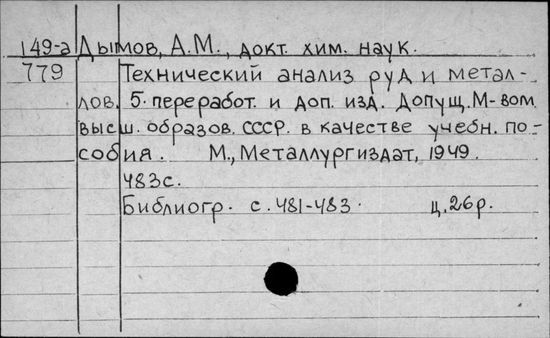 149-а Дымов, А.М., докт. хим. наук.
779 Технический анализ руд и метал-
лов. 5. переработ. и доп. изд. Допущ. М-вом
высш. образов. СССР. в качестве учебн. по-
собия. М., Металлургиздат, 1949.
483с.
Библиогр. с. 481-483. ц. 26р.